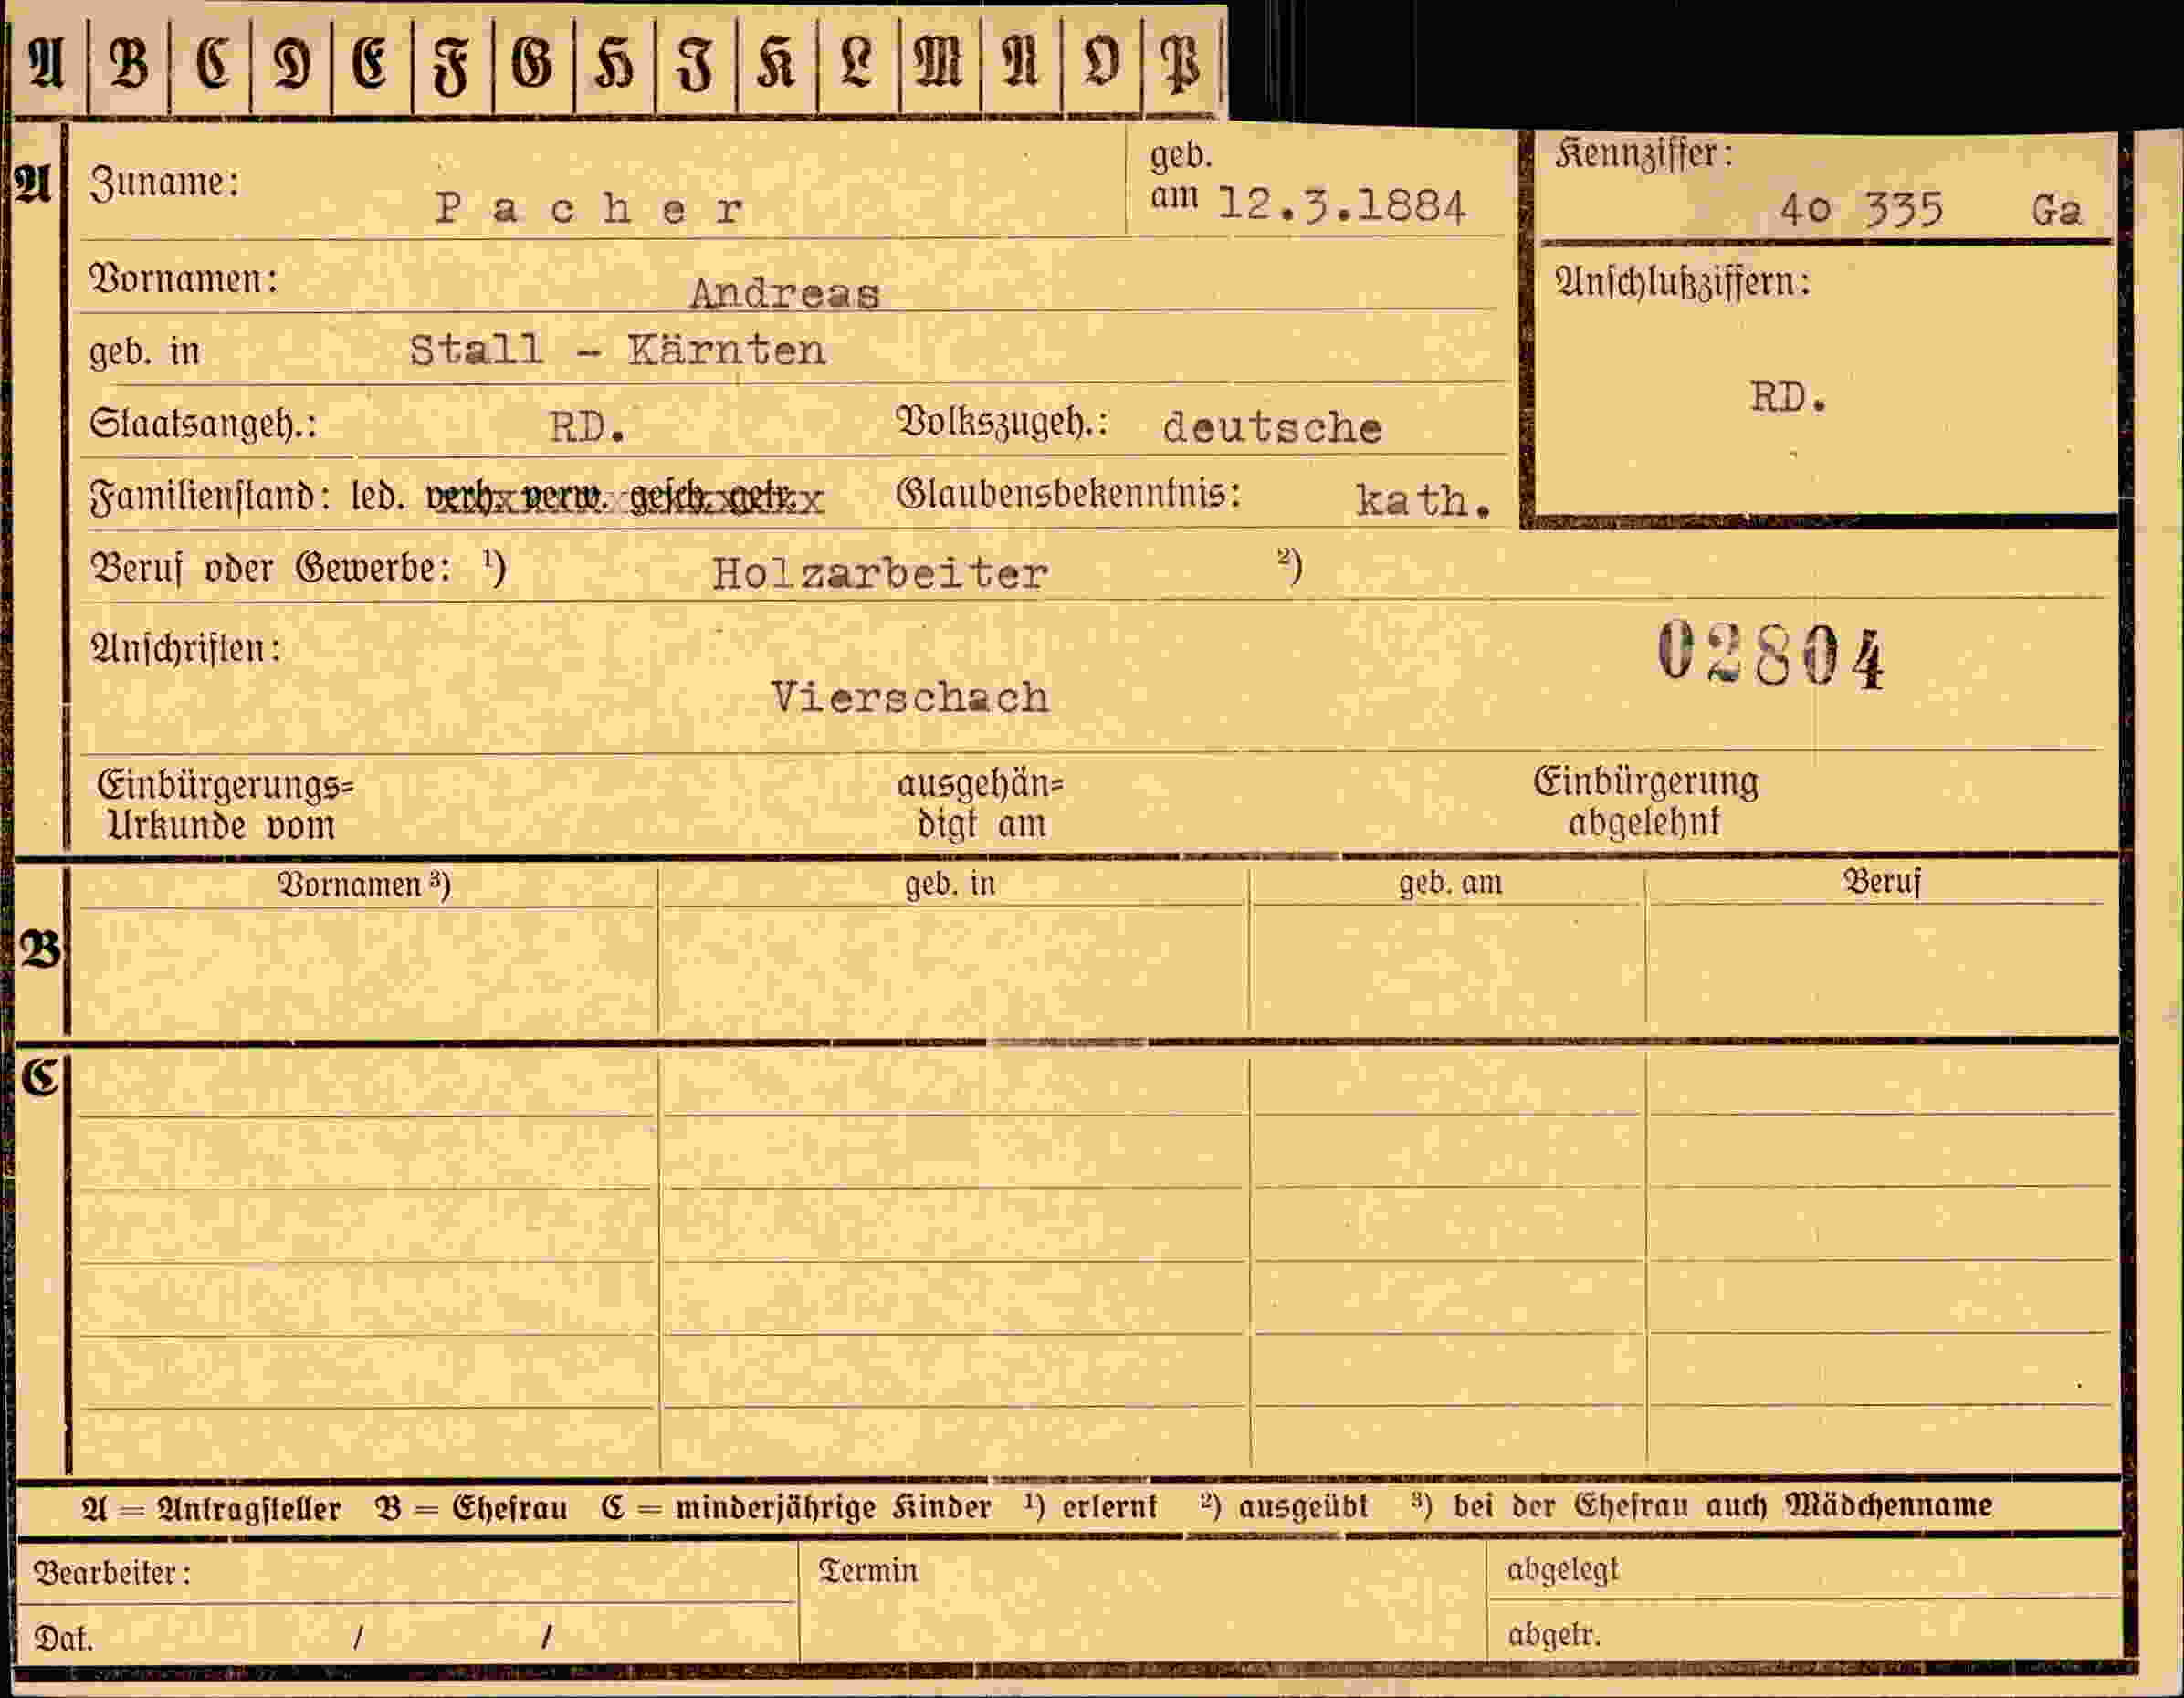 A B C D E F G H I K L M N O P
A
Zuname: Pacher
geb. am 12.3.1884
Kennziffer: 40 335 Ga
Vornamen: Andreas
Anschlußziffern: RD.
geb. in Stall - Kärnten
Staatsangeh.: RD. Volkszugeh.: deutsche
Familienstand: led. verh. verw. gesch. getr. Glaubensbekenntnis: kath.
Beruf oder Gewerbe: ¹) Holzarbeiter ²)
Anschriften: Vierschach
02804
Einbürgerungs=
Urkunde vom
ausgehän=
digt am
Einbürgerung
abgelehnt
B
Vornamen ³) geb. in geb. am Beruf
C
A = Antragsteller B = Ehefrau C = minderjährige Kinder ¹) erlernt ²) ausgeübt ³) bei der Ehefrau auch Mädchenname
Bearbeiter: Termin abgelegt
Dat. / / abgetr.